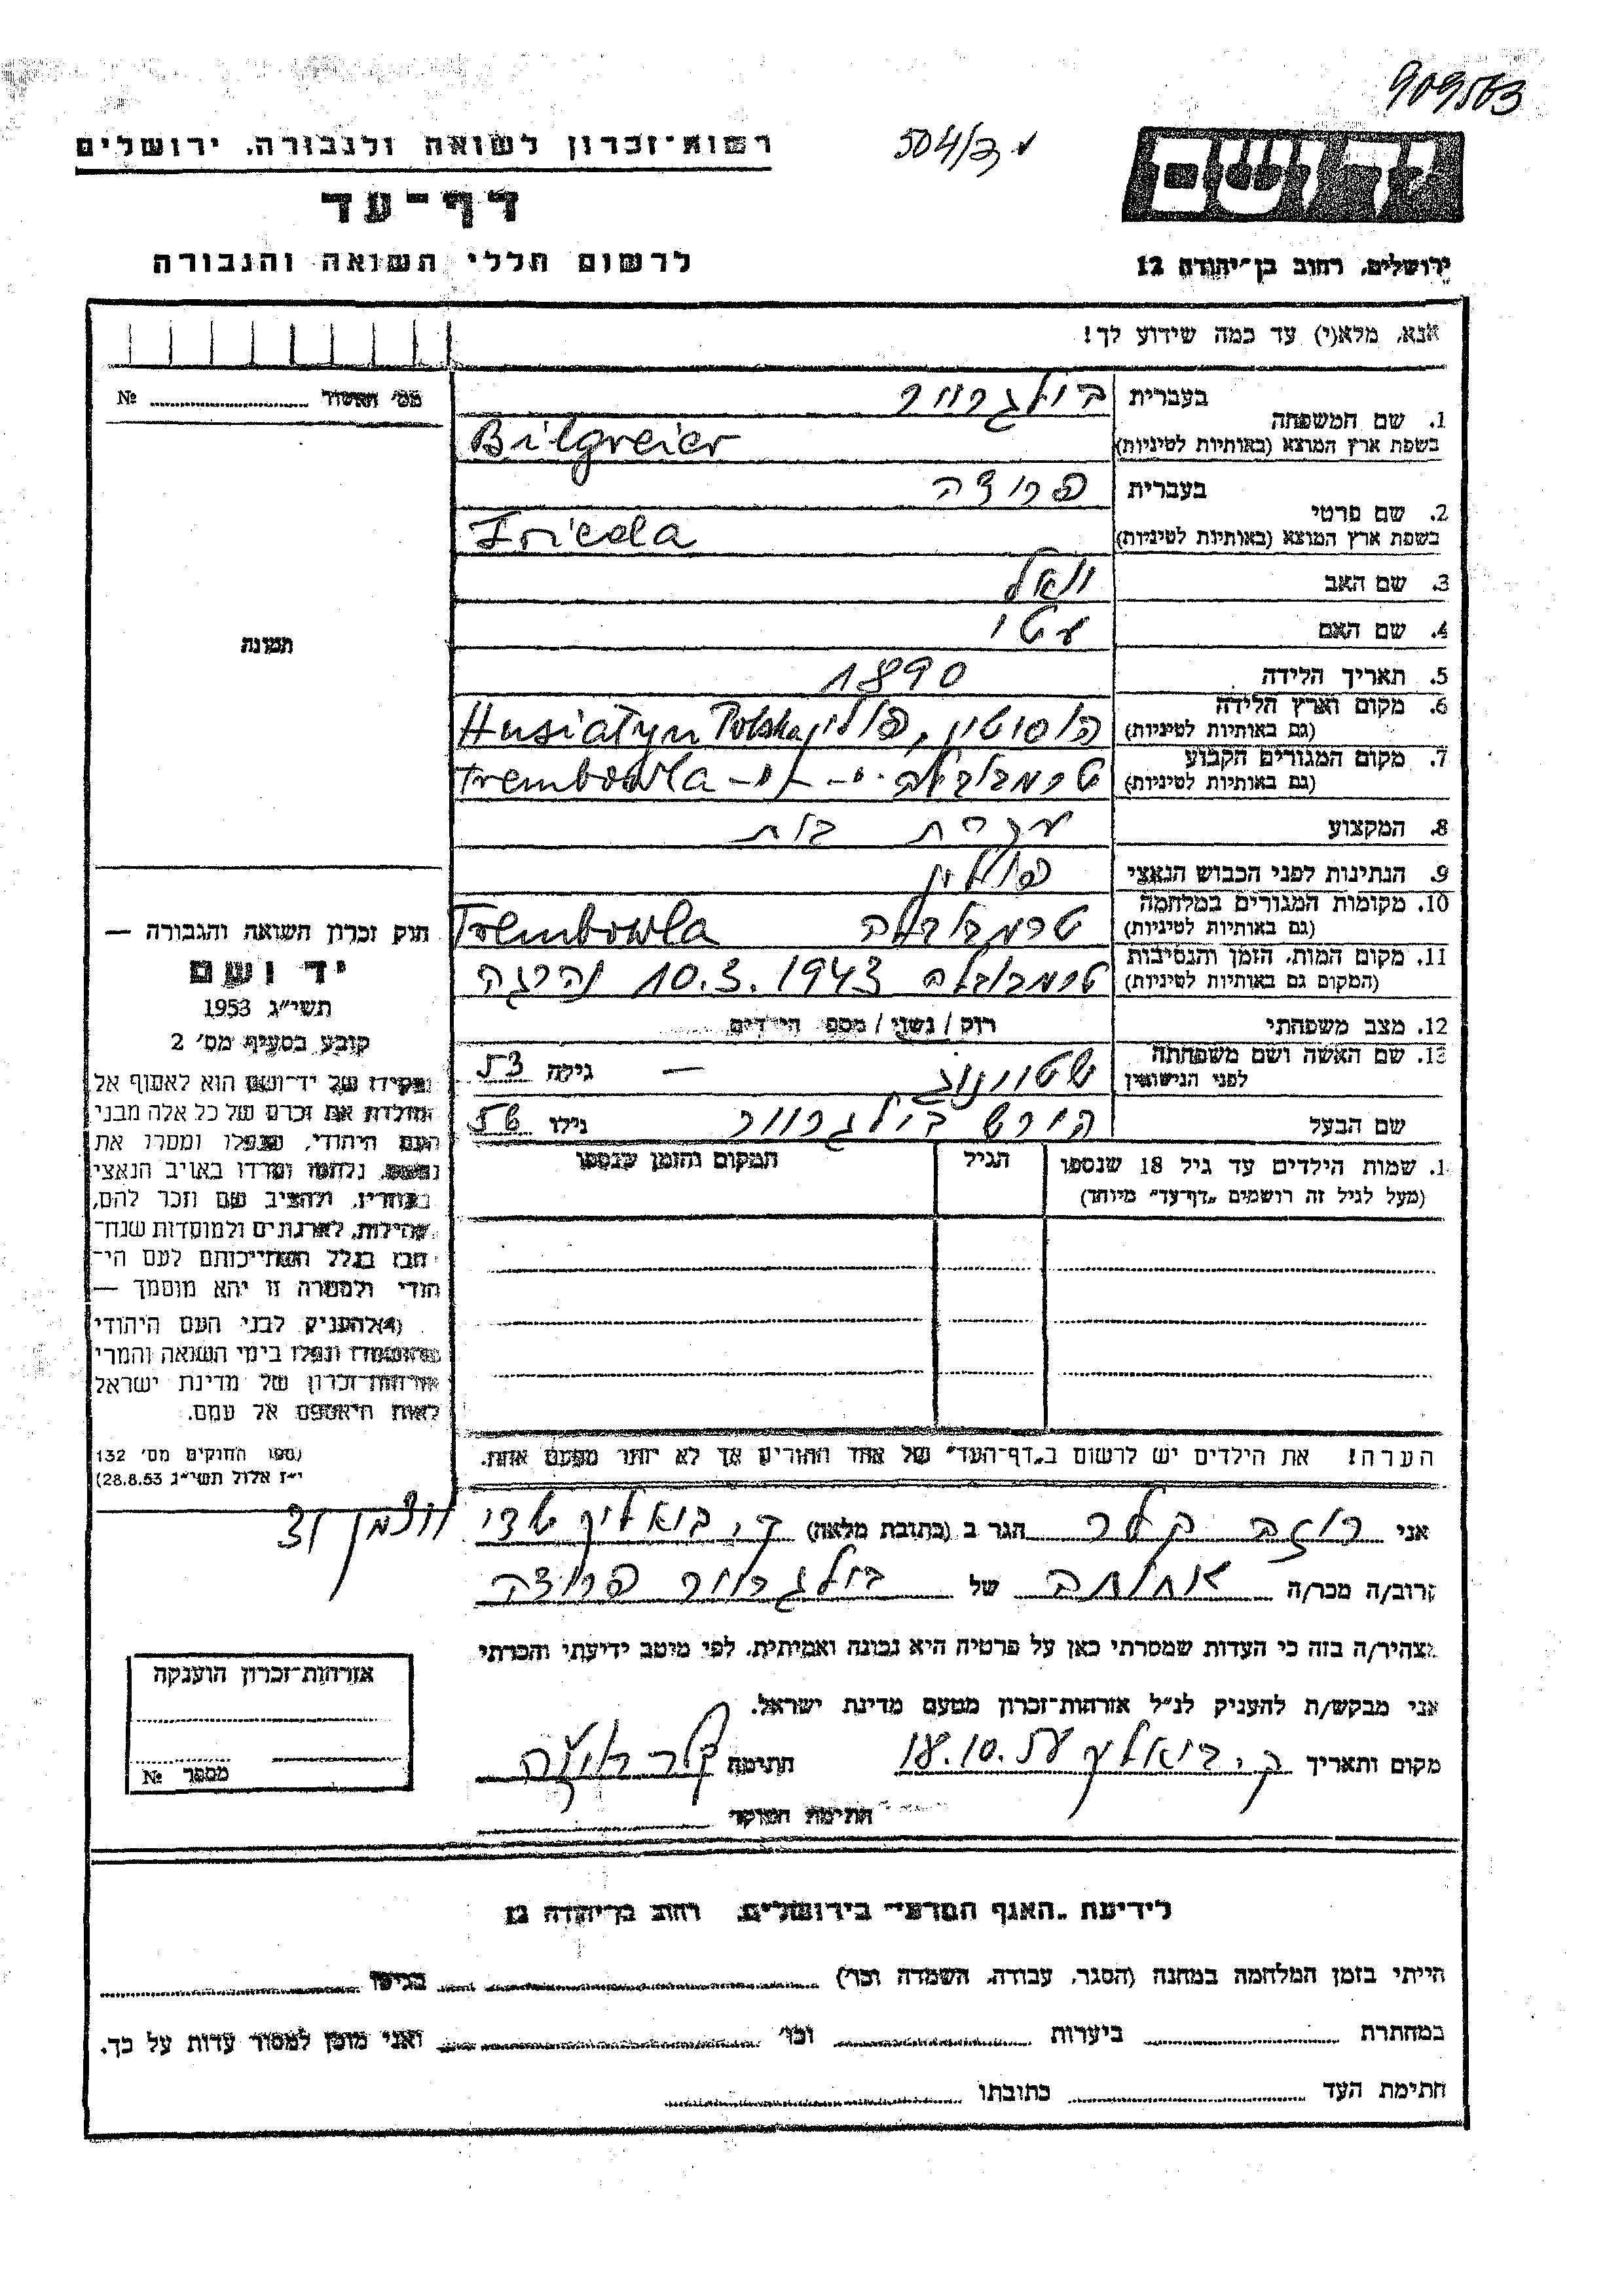 909563
504/3
רשות־זכרון לשואה ולגבורה, ירושלים
דף־עד
לרשום חללי השואה והגבורה
יד ושם
ירושלים, רחוב בן־יהודה 12
אנא, מלא(י) עד כמה שידוע לך!
מס׳ האשור № 
1. שם המשפחה
בעברית בילגרייר
בשפת ארץ המוצא (באותיות לטיניות) Bilgreier
2. שם פרטי
בעברית פרידה
בשפת ארץ המוצא (באותיות לטיניות) Frieda
3. שם האב יואל
4. שם האם עטי
5. תאריך הלידה 1890
6. מקום וארץ הלידה (גם באותיות לטיניות) הוסיטין, פולין Husiatyn Polska
7. מקום המגורים הקבוע (גם באותיות לטיניות) טרמבובלה -"- -"- Trembowla
8. המקצוע עקרת בית
9. הנתינות לפני הכבוש הנאצי פולין
10. מקומות המגורים במלחמה (גם באותיות לטיניות) טרמבובלה Trembowla
11. מקום המות, הזמן והנסיבות (המקום גם באותיות לטיניות) טרמבובלה 10.3.1943
12. מצב משפחתי רוק / נשוי / מספר הילדים
13. שם האשה ושם משפחתה לפני הנישואין — גילה 53
שם הבעל הירש בילגרייר גילו
1. שמות הילדים עד גיל 18 שנספו
(מעל לגיל זה רושמים „דף־עד״ מיוחד)
הגיל
המקום והזמן שנספו
הערה! את הילדים יש לרשום ב„דף־העד״ של אחד ההורים אך לא יותר מפעם אחת.
תמונה
חוק זכרון השואה והגבורה —
יד ושם
תשי״ג 1953
קובע בסעיף מס׳ 2
תפקידו של יד־ושם הוא לאסוף אל
המולדת את זכרם של כל אלה מבני
העם היהודי, שנפלו ומסרו את
נפשם, נלחמו ומרדו באויב הנאצי
בעוזריו, ולהציב שם וזכר להם,
לקהילות, לארגונים ולמוסדות שנח־
רבו בגלל השתייכותם לעם הי־
הודי ולמטרה זו יהא מוסמך —
(4) להעניק לבני העם היהודי
שהושמדו ונפלו בימי השואה והמרי
אזרחות־זכרון של מדינת ישראל
לאות היאספם אל עמם.
(ספר החוקים מס׳ 132
י״ז אלול תשי״ג 28.8.53)
אני רוזה קלר הגר ב (כתובת מלאה) ק. ביאליק
קרוב/ה מכר/ה אחותה של בילגרייר פרידה
מצהיר/ה בזה כי העדות שמסרתי כאן על פרטיה היא נכונה ואמיתית, לפי מיטב ידיעתי והכרתי
אני מבקש/ת להעניק לנ״ל אזרחות־זכרון מטעם מדינת ישראל.
מקום ותאריך ק. ביאליק 18.10.57 חתימה קלר רוזה
חתימת הפוקד
אזרחות־זכרון הוענקה
מספר №
לידיעת „האגף המדעי״ בירושלים, רחוב בן־יהודה 12
הייתי בזמן המלחמה במחנה (הסגר, עבודה, השמדה וכו׳) בגיטו
במחתרת ביערות וכו׳ ואני מוכן למסור עדות על כך.
חתימת העד כתובתו